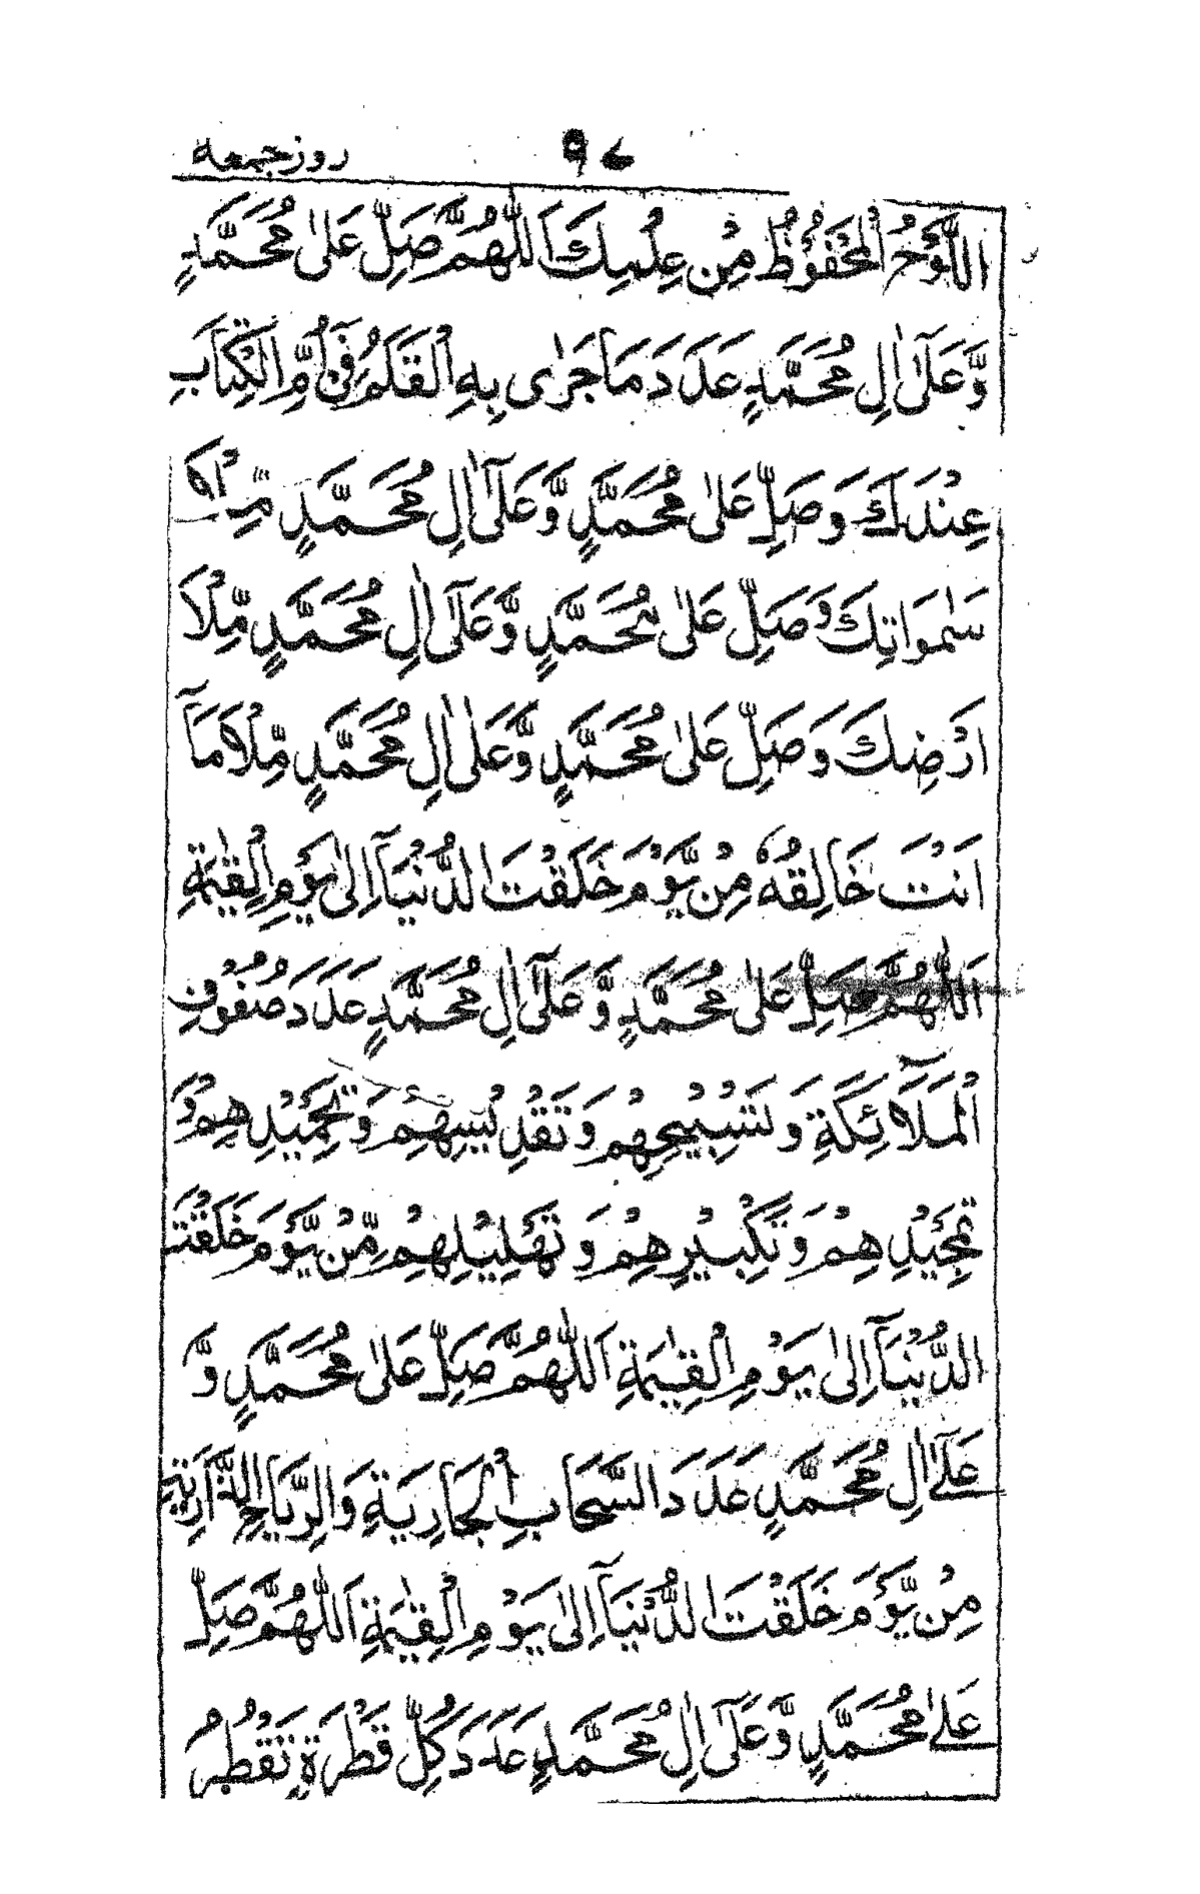 ۹۷ روز جمعه
اللَّوْحُ الْمَحْفُوْظُ مِنْ عِلْمِكَ اَللّٰهُمَّ صَلِّ عَلٰى مُحَمَّدٍ
وَّعَلٰٓى اٰلِ مُحَمَّدٍ عَدَدَ مَا جَرٰى بِهِ الْقَلَمُ فِيْٓ اُمِّ الْكِتَابِ
عِنْدَكَ وَصَلِّ عَلٰى مُحَمَّدٍ وَّعَلٰٓى اٰلِ مُحَمَّدٍ
سَمٰوَاتِكَ وَصَلِّ عَلٰى مُحَمَّدٍ وَّعَلٰٓى اٰلِ مُحَمَّدٍ مِّلْاَ
اَرْضِكَ وَصَلِّ عَلٰى مُحَمَّدٍ وَّعَلٰى اٰلِ مُحَمَّدٍ مِّلْاَ مَآ
اَنْتَ خَالِقُهٗ مِنْ يَّوْمَ خَلَقْتَ الدُّنْيَآ اِلٰى يَوْمِ الْقِيٰمَةِ
اَللّٰهُمَّ صَلِّ عَلٰى مُحَمَّدٍ وَّعَلٰٓى اٰلِ مُحَمَّدٍ عَدَدَ صُفُوْفِ
الْمَلَآئِكَةِ وَتَسْبِيْحِهِمْ وَتَقْدِيْسِهِمْ وَتَحْمِيْدِهِمْ وَ
تَمْجِيْدِهِمْ وَتَكْبِيْرِهِمْ وَتَهْلِيْلِهِمْ مِّنْ يَّوْمَ خَلَقْتَ
الدُّنْيَآ اِلٰى يَوْمِ الْقِيٰمَةِ اَللّٰهُمَّ صَلِّ عَلٰى مُحَمَّدٍ وَّ
عَلٰٓى اٰلِ مُحَمَّدٍ عَدَدَ السَّحَابِ الْجَارِيَةِ وَالرِّيَاحِ الذَّارِيَةِ
مِنْ يَّوْمَ خَلَقْتَ الدُّنْيَآ اِلٰى يَوْمِ الْقِيٰمَةِ اَللّٰهُمَّ صَلِّ
عَلٰى مُحَمَّدٍ وَّعَلٰٓى اٰلِ مُحَمَّدٍ عَدَدَ كُلِّ قَطْرَةٍ تَقْطُرُ